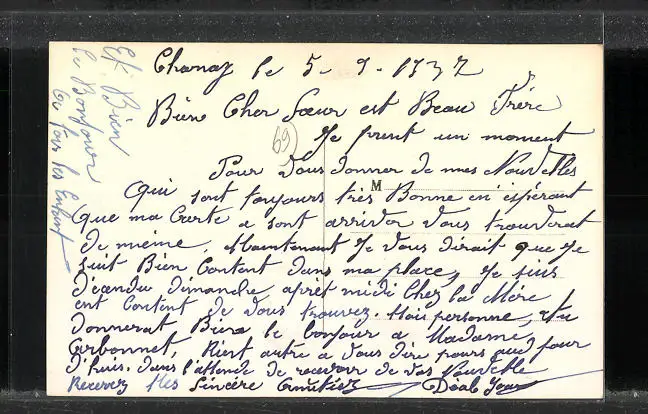 Charnay le 5-9-1937
Bien Cher Sœur est Beau Frére
(69)
Je prent un moment
Pour Vous donner de mes Nouvelles
M
qui sont toujours très Bonne en espérant
que ma Carte a sont arrivér Vous trouverat
de même. Maintenant Je Vous dirait que Je
suit Bien Content dans ma place, Je suis
d'écendu dimandre aprét midi Chez la Mére
est Content de Vous trouvez. Mais personne, tu
donnerat Bien le bonjour a Madame
Carbonnet, Rient autre a Vous dire pours
d'huis. dans l'attende de recevoir de Vos Nouvelle
Recevez Mes Sincère Amitiez
Et Bien
le Bonjour
les Enfant